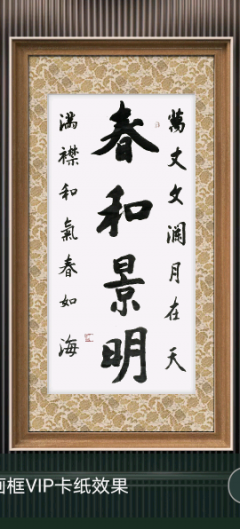 萬丈文瀾月在天
春和景明
满襟和氣春如海
画框VIP卡纸效果